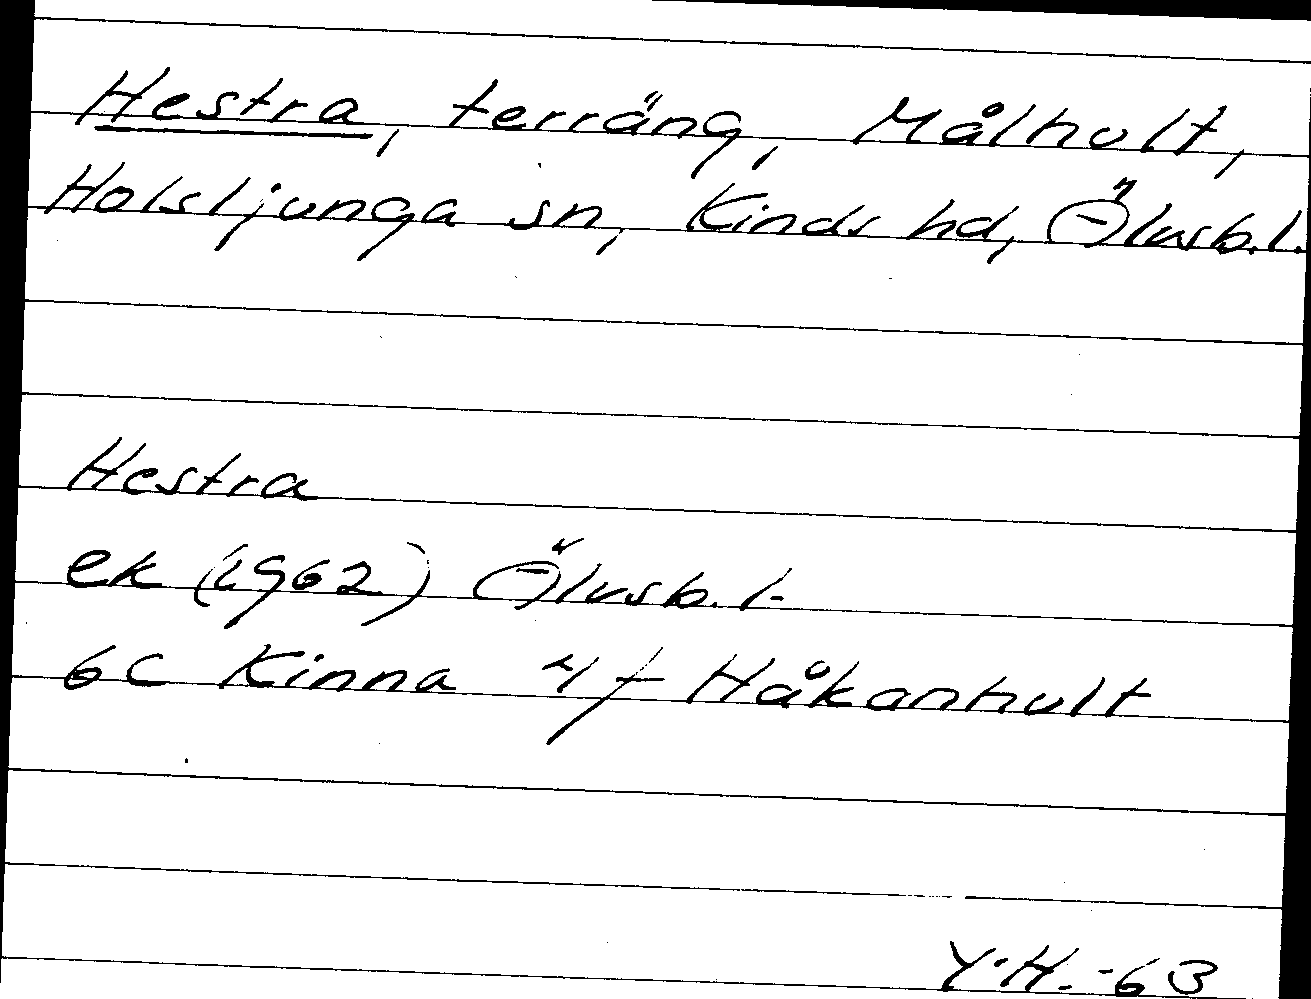 Hestra, terräng, Målhult,
Holsljunga sn, Kinds hd, Älvsb.l.
Hestra
ek (1962) Älvsb.l.
6C Kinna 4f Håkanhult
Y.H.-63